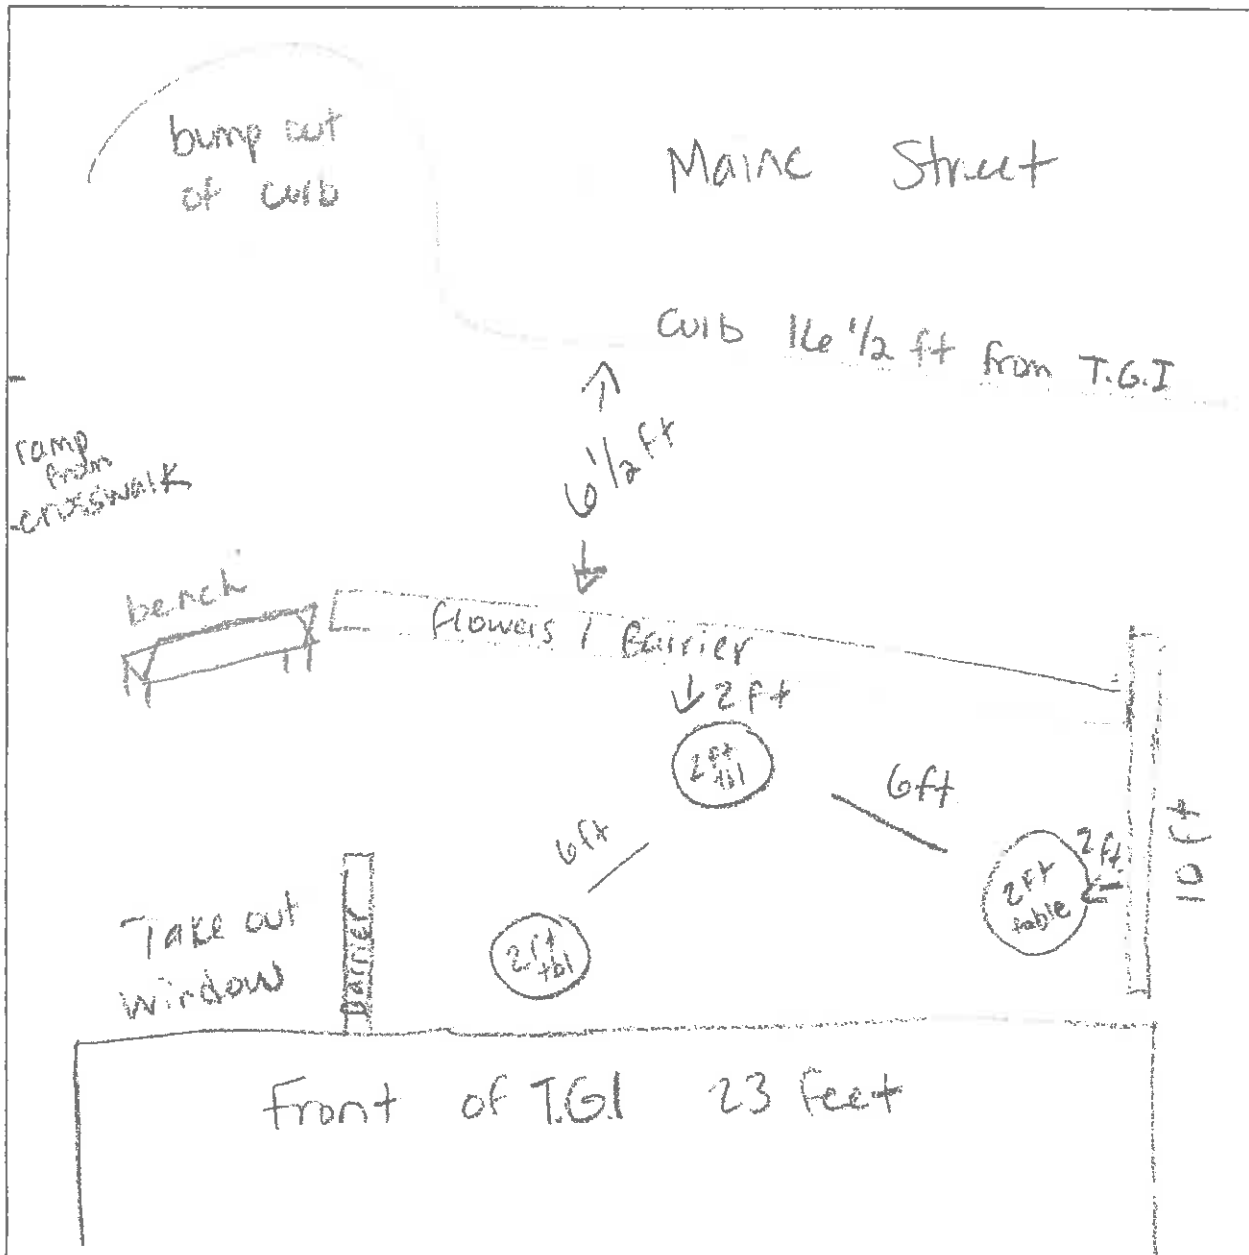 bump out
of curb
Maine Street
Curb 16 1/2 ft from T.G.I
ramp
from
crosswalk
6 1/2 ft
bench
flowers / Barrier
2 ft
2 ft
tbl
6ft
6ft
2 ft
2 ft
table
10 ft
Take out
window
Barrier
2 ft
tbl
Front of T.G.I 23 feet